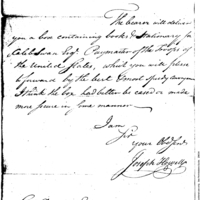 The bearer will deliver
you a box containing books & Stationary for
Caleb Swan Esqr. Paymaster of the Troops of
the United States, which you will please
to forward by the best & most speedy conveyance
I think the box had better be cased or made
more secure in some manner
I am
Sir
your Obed Servt
Joseph Howell